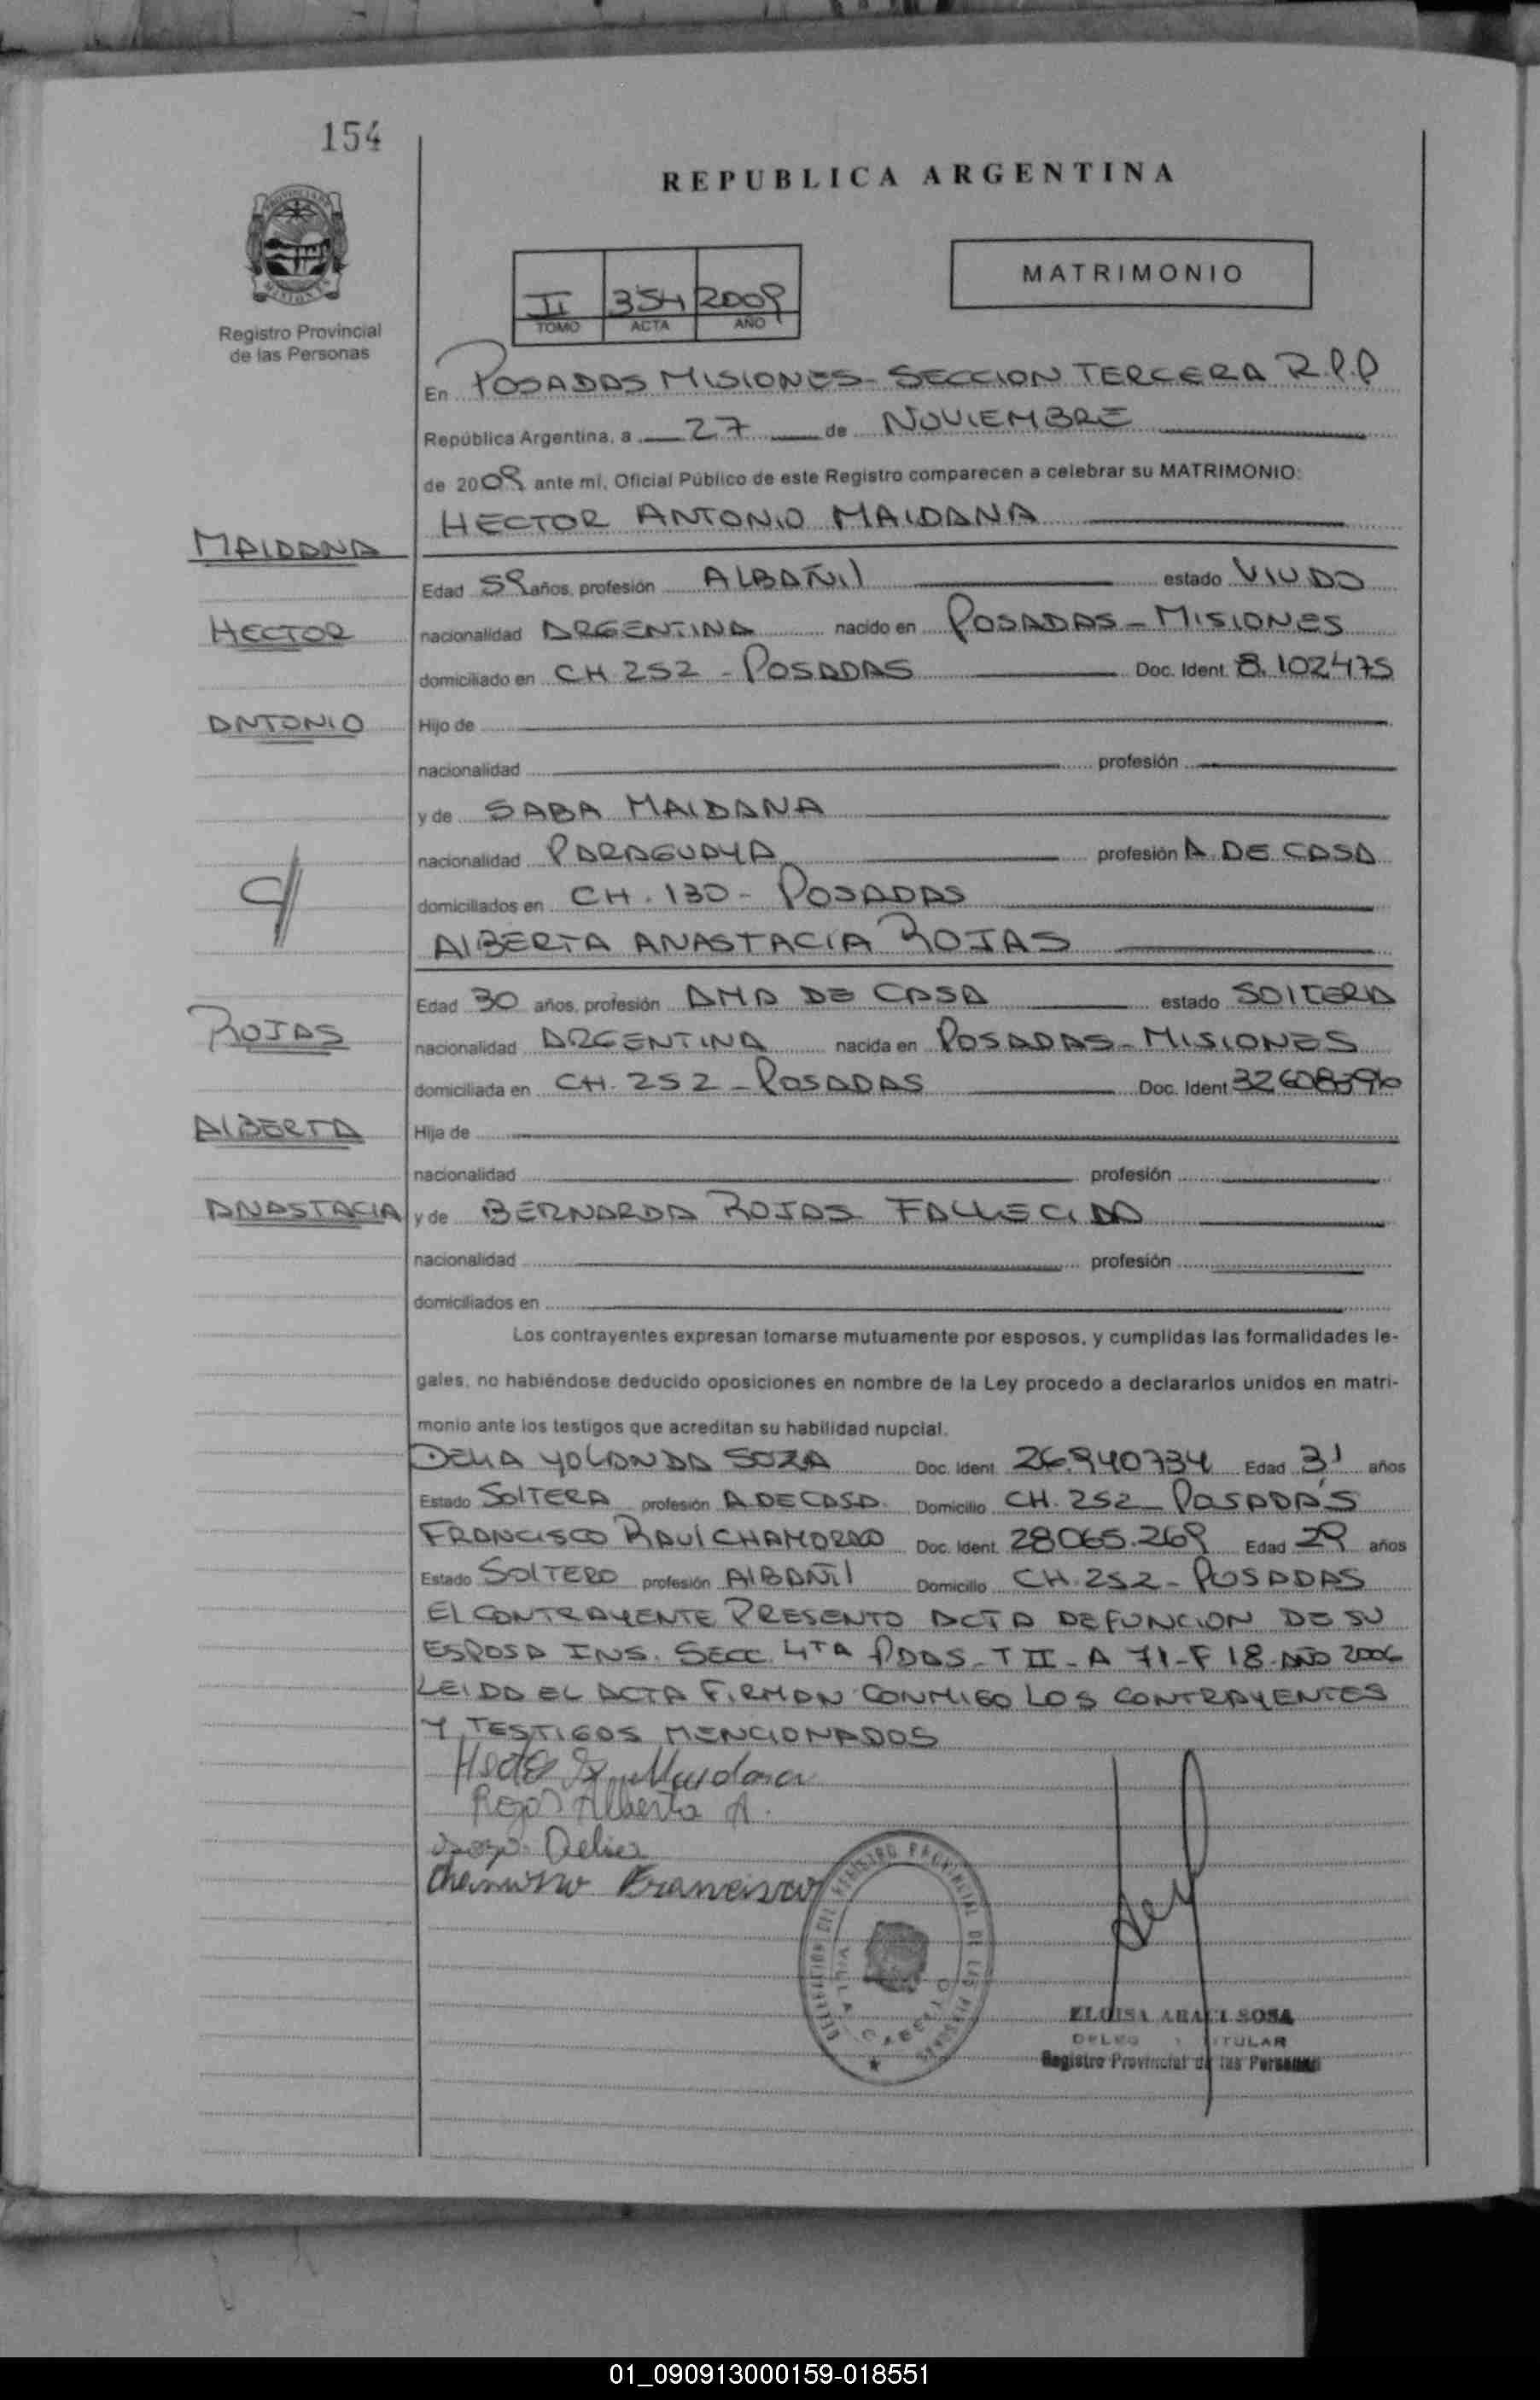 154
REPUBLICA ARGENTINA
PROVINCIA DE
MISIONES
Registro Provincial
de las Personas
MATRIMONIO
II 354 2009
TOMO ACTA AÑO
En POSADAS MISIONES - SECCION TERCERA R.P.P
República Argentina, a 27 de NOVIEMBRE
de 2009 ante mí, Oficial Público de este Registro comparecen a celebrar su MATRIMONIO:
HECTOR ANTONIO MAIDANA
MAIDANA
Edad 59 años, profesión ALBAÑIL estado VIUDO
HECTOR
nacionalidad ARGENTINA nacido en POSADAS - MISIONES
domiciliado en CH 252 - POSADAS Doc. Ident. 8.102475
ANTONIO
Hijo de
nacionalidad profesión
y de SABA MAIDANA
nacionalidad PARAGUAYA profesión A. DE CASA
domiciliados en CH. 130 - POSADAS
ALBERTA ANASTACIA ROJAS
Edad 30 años, profesión AMA DE CASA estado SOLTERA
ROJAS
nacionalidad ARGENTINA nacida en POSADAS - MISIONES
domiciliada en CH. 252 - POSADAS Doc. Ident
ALBERTA
Hija de
nacionalidad profesión
ANASTACIA
y de BERNARDA ROJAS FALLECIDA
nacionalidad profesión
domiciliados en
Los contrayentes expresan tomarse mutuamente por esposos, y cumplidas las formalidades le-
gales, no habiéndose deducido oposiciones en nombre de la Ley procedo a declararlos unidos en matri-
monio ante los testigos que acreditan su habilidad nupcial.
DELIA YOLANDA SOZA Doc. Ident. 26.940734 Edad 31 años
Estado SOLTERA profesión A DE CASA. Domicilio CH. 252 - POSADAS
FRANCISCO RAUL CHAMORRO Doc. Ident. 28065.269 Edad 29 años
Estado SOLTERO profesión ALBAÑIL Domicilio CH. 252 - POSADAS
EL CONTRAYENTE PRESENTO ACTA DEFUNCION DE SU
ESPOSA INS. SECC. 4TA PDAS - T II - A 71 - F 18 - AÑO 2006
LEIDO EL ACTA FIRMAN CONMIGO LOS CONTRAYENTES
Y TESTIGOS MENCIONADOS
Maidana
Rojas Alberta A.
Delia
Francisco
DELEGACION DEL REGISTRO PROVINCIAL DE LAS PERSONAS
VILLA CABELLO
ELOISA ARACI SOSA
TITULAR
Registro Provincial de las Personas
01_090913000159-018551